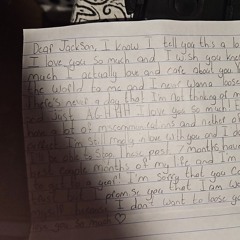 Dear Jackson, I know I tell you this a lo
I love you so much and I wish you kne
much I actually love and care about you
the world to me and I never wanna loose
There's never a day that I'm not thinking of
and Just ACHHH I love you so much
have a lot of miscommunications and neither of
perfect I'm still madly in love with you and I do
to stop. These past 7 months hav
best couple months of my life and I'm
a year! I'm sorry that you ca
promise you that I am wo
I don't want to loose yo